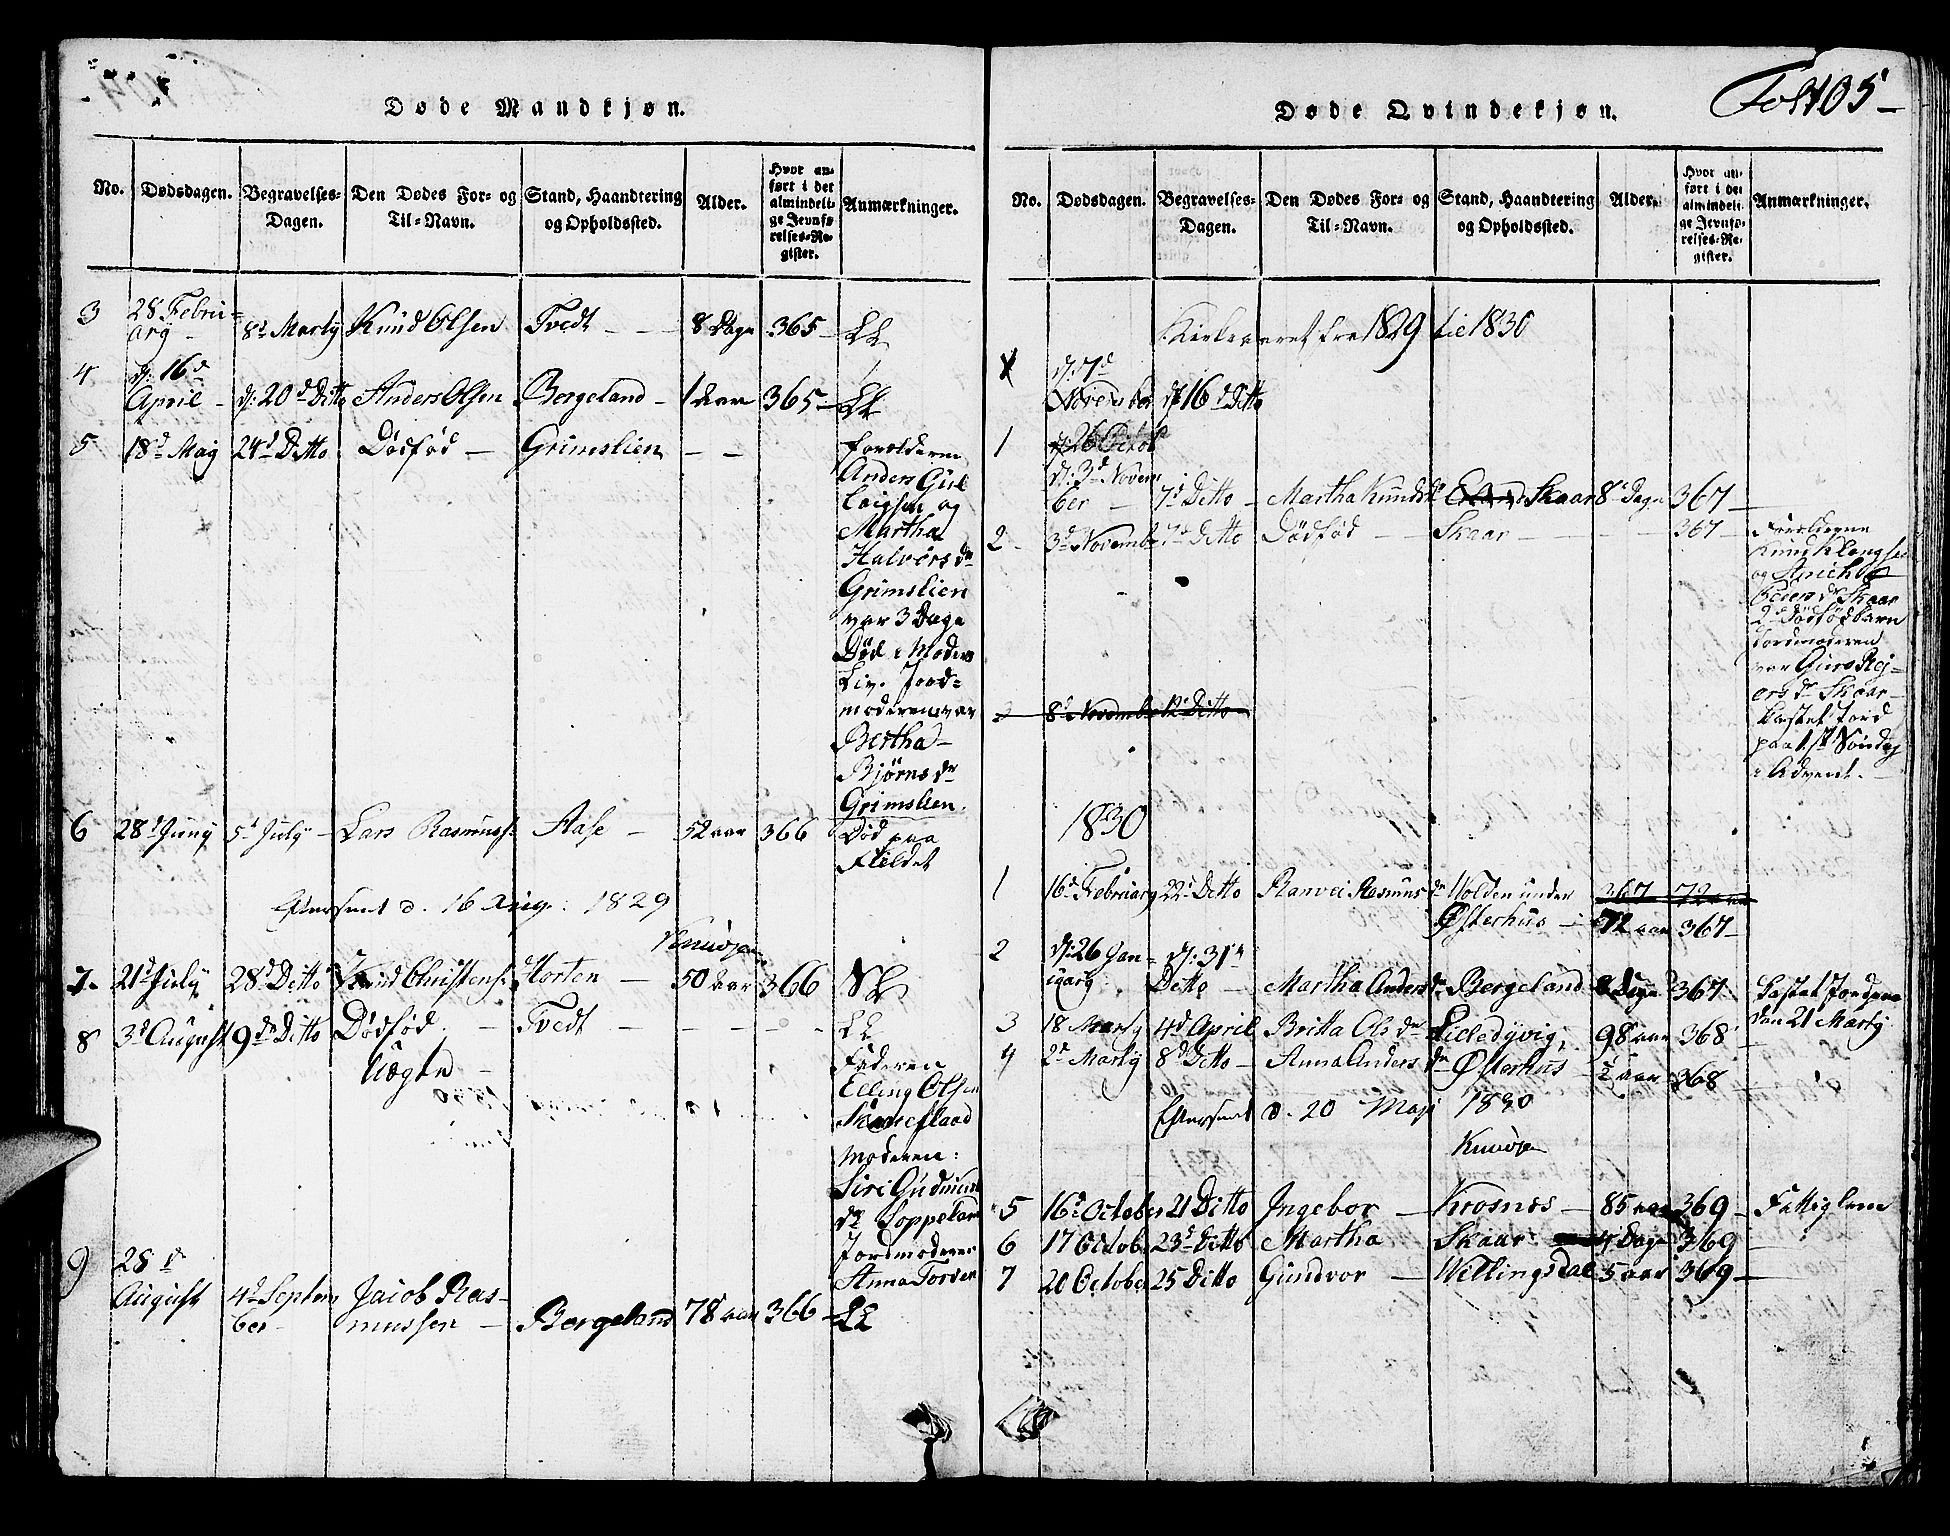 Døde Mandkjøn.
No. Dødsdagen. Begravelses-Dagen. Den Dødes For- og Til-Navn. Stand, Haandtering og Opholdssted. Alder. Hvor anført i det almindelige Jevnførelses-Register. Anmærkninger.
3 28 Februarÿ 8d Martÿ Knud Olsen Tvedt 8 Dage 365 LL
4 d: 16d April d: 20d Ditto Anders Olsen Bergeland 1 Aar 365 LL
5 18d Maÿ 24d Ditto Dødfød Grimslien
Forældrene
Anders
og
Martha
Halvorsdr
Grimslien
var 3 Dage
Død i Moders
Liv. Jord=
moderen var
Bertha
Bjørnsdr
Grimslien.
6 28d Junÿ 5d Julÿ Lars Rasmuss: Aase 52 aar 366 Død paa Fieldet
Efterseet d. 16 Aug: 1829
7 21d Julÿ 28d Ditto Christens: Horten 50 aar 366 SL
8 3d August 9de Ditto Dødfød Uægte Tvedt LL
Faderen
Elling Olsen
Moderen:
Siri Gudmunds
dr
Jordmoderen
Anna
9 28d August 4d September Jacob Rasmussen Bergeland 78 aar 366 LL
Døde Qvindekjøn.
Fol 105
No. Dødsdagen. Begravelses-Dagen. Den Dødes For- og Til-Navn. Stand, Haandtering og Opholdssted. Alder. Hvor anført i det almindelige Jevnførelses-Register. Anmærkninger.
Kirkeaaret fra 1829 til 1830
d: 7d November d 16d Ditto
1 d: 26 Octob
d: 3d November 7d Ditto Martha Knudsdr Skaar 8 Dage 367
2 3d Novembr 7d Ditto Dødfød Skaar 367
Forældrene
Knud
og
Skaar
2d Dødfød Barn
Jordmoderen
var
Skaar
Jord
paa 1st Søndag
i Advent.
3 8d Novembe 12d Ditto
1830
1 16d Februarÿ 22d Ditto Ranvei Rasmusdr Holden under Østerhus 367 72 aar
72 aar 367
2 d: 26 Januarÿ d: 31te Ditto Martha Andersdr Bergeland Dage 367 Kastet Jord paa den 21 Martÿ
3 18 Martÿ 4d April Britta Olsdr 98 aar 368
4 2d Martÿ 8d Ditto Anna Andersdr Østerhus ½ aar 368
Efterseet d. 20 Maji 1830
5 16d October 21 Ditto Ingebor Krosnes 85 aar 369 Fattiglem
6 17 Octob 23d Ditto Martha Skaar 4 Dage 369
7 20 October 25 Ditto Gundvor Wellingsdal 5 aar 369